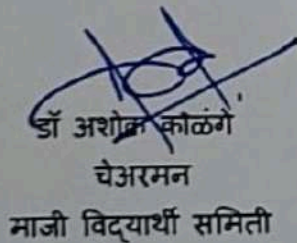 डॉ अशोक कोळंगे
चेअरमन
माजी विद्यार्थी समिती